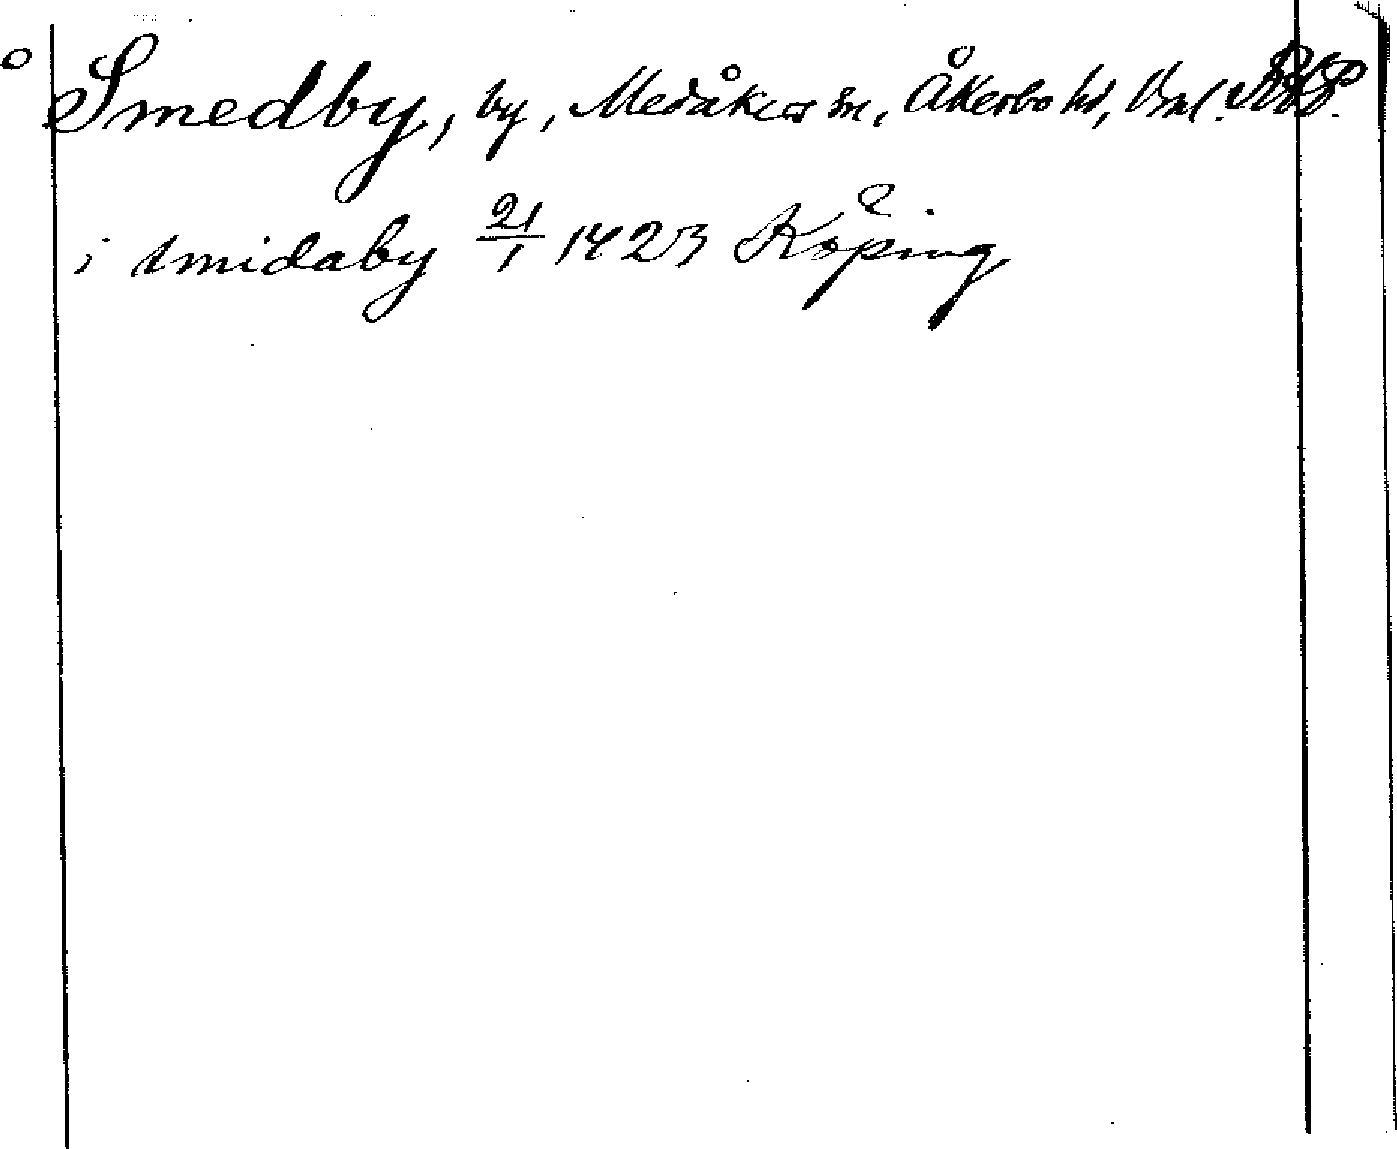 ° Smedby, by, Medåkers sn, Åkerbo hd, Vml. RAP.
i smidaby 21/1 1423 Köping